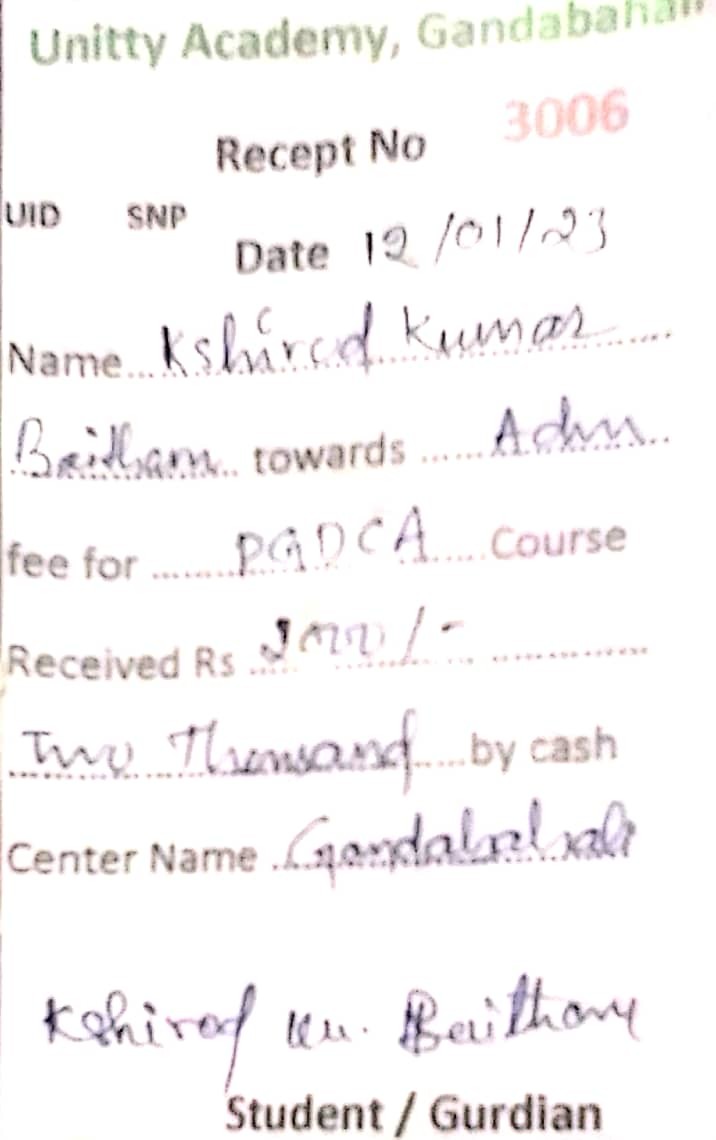 Unitty Academy, Gandabahali
3006
Recept No
UID SNP
Date 12/01/23
Name... Kshirod Kumar
Baitharu.. towards ...... Adm...
fee for ....... PGDCA ..... Course
Received Rs .... 2000/- ................
Two Thousand ..... by cash
Center Name ... Gandabahali
Kshirod Ku. Baitharu
Student / Gurdian